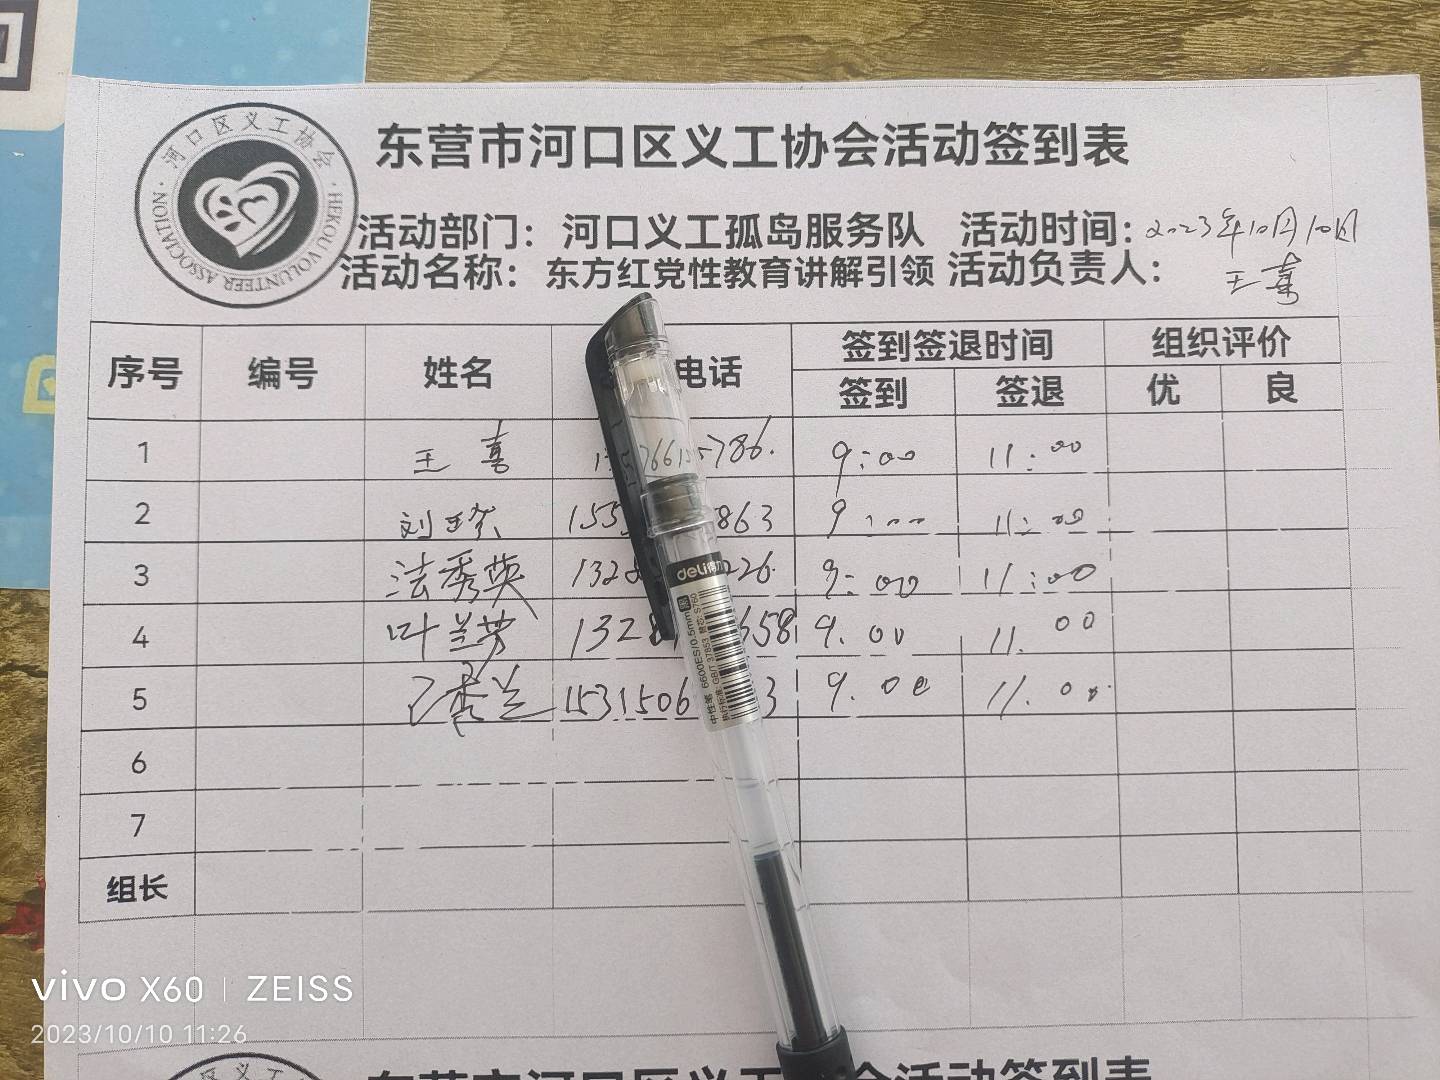 河口区义工协会
HEKOU VOLUNTEER ASSOCIATION
东营市河口区义工协会活动签到表
活动部门：河口义工孤岛服务队 活动时间：2023年10月10日
活动名称：东方红党性教育讲解引领 活动负责人：王喜
序号 编号 姓名 电话 签到签退时间 组织评价
签到 签退 优 良
1 王喜 786. 9:00 11:00
2 155 863 9:00 11:00
3 法秀英 132 226. 9:00 11:00
4 叶兰芳 132 658 9.00 11.00
5 秀兰 1531506 3 9.00 11.00
6
7
组长
deli得力
中性笔 6600ES/0.5mm 黑
执行标准: GB/T 37853 替芯: S760
vivo X60 | ZEISS
2023/10/10 11:26
东营市河口区义工协会活动签到表